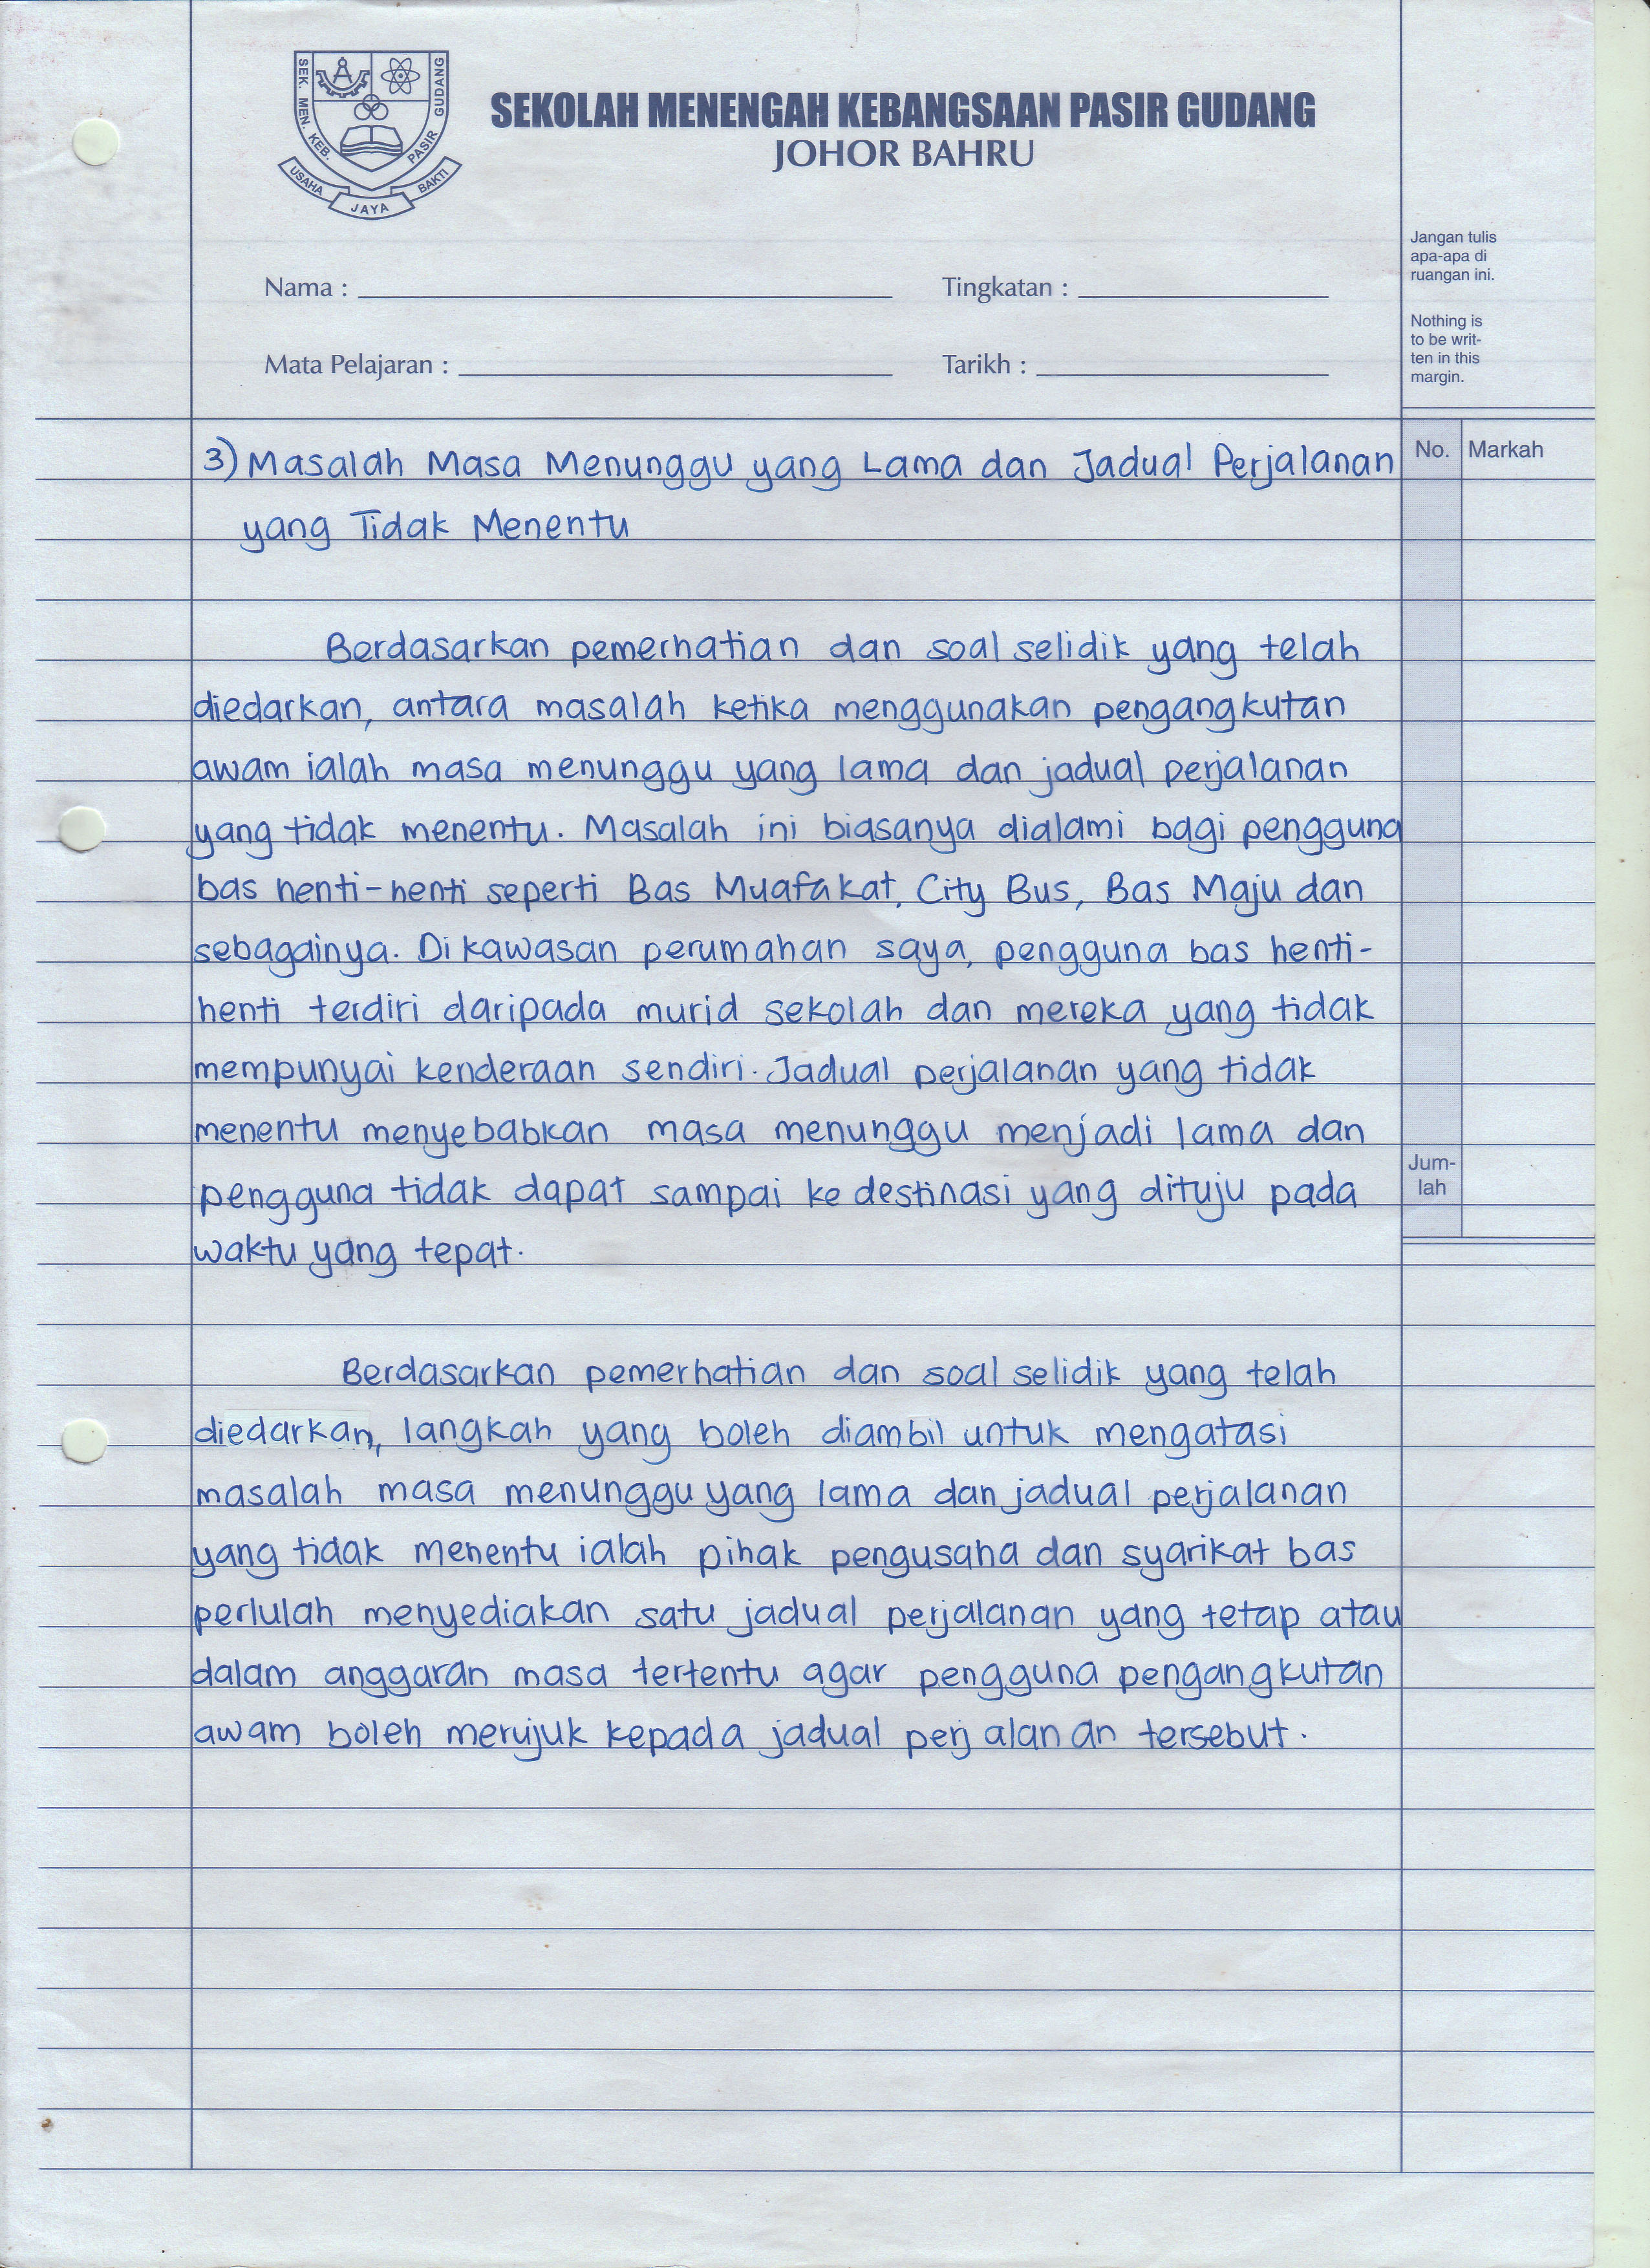 SEK. MEN. KEB. PASIR GUDANG
USAHA JAYA BAKTI
SEKOLAH MENENGAH KEBANGSAAN PASIR GUDANG
JOHOR BAHRU
Jangan tulis
apa-apa di
ruangan ini.
Nama : Tingkatan :
Nothing is
to be writ-
ten in this
margin.
Mata Pelajaran : Tarikh :
No. Markah
3) Masalah Masa Menunggu yang Lama dan Jadual Perjalanan
yang Tidak Menentu
Berdasarkan pemerhatian dan soal selidik yang telah
diedarkan, antara masalah ketika menggunakan pengangkutan
awam ialah masa menunggu yang lama dan jadual perjalanan
yang tidak menentu. Masalah ini biasanya dialami bagi pengguna
bas henti-henti seperti Bas Muafakat, City Bus, Bas Maju dan
sebagainya. Di kawasan perumahan saya, pengguna bas henti-
henti terdiri daripada murid sekolah dan mereka yang tidak
mempunyai kenderaan sendiri. Jadual perjalanan yang tidak
menentu menyebabkan masa menunggu menjadi lama dan
pengguna tidak dapat sampai ke destinasi yang dituju pada
waktu yang tepat.
Jum-
lah
Berdasarkan pemerhatian dan soal selidik yang telah
diedarkan, langkah yang boleh diambil untuk mengatasi
masalah masa menunggu yang lama dan jadual perjalanan
yang tidak menentu ialah pihak pengusaha dan syarikat bas
perlulah menyediakan satu jadual perjalanan yang tetap atau
dalam anggaran masa tertentu agar pengguna pengangkutan
awam boleh merujuk kepada jadual perjalanan tersebut.